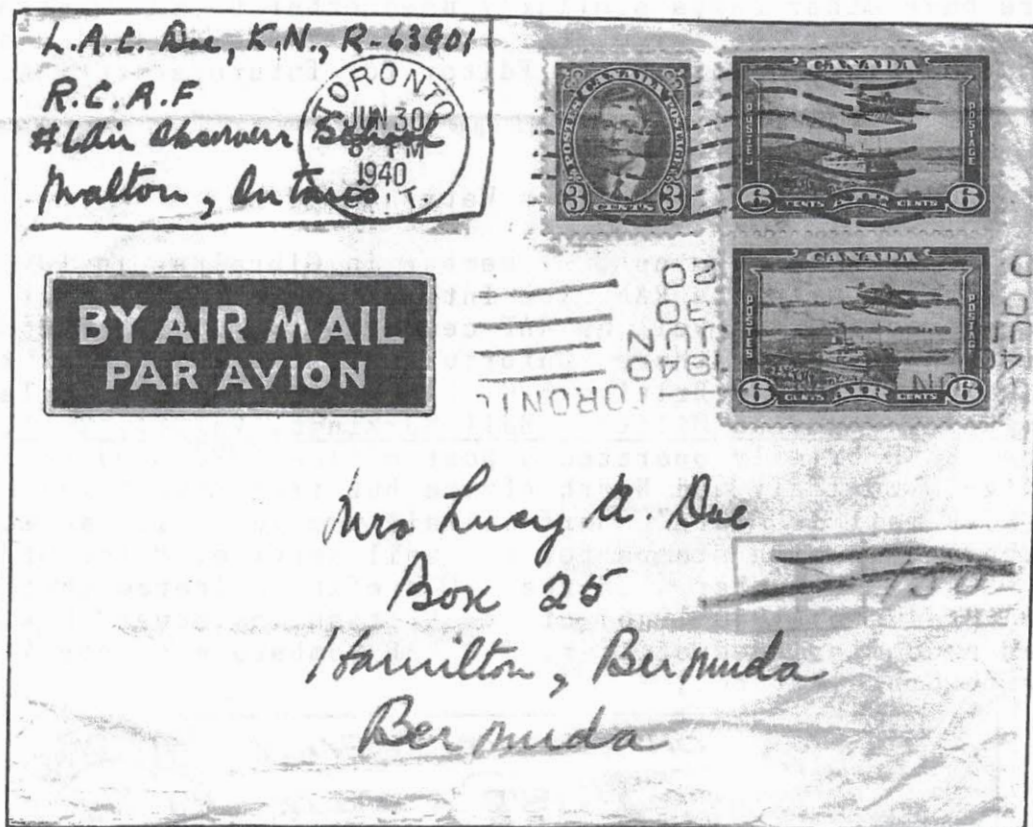 L.A.C. Doe, K.N., R-63901
R.C.A.F
#1 Air Observers School
Malton, Ontario
TORONTO
JUN 30
8 PM
1940
T
CANADA
POSTES POSTAGE
3 CENTS 3
CANADA
POSTES POSTAGE
6 CENTS AIR CENTS 6
CANADA
POSTES POSTAGE
6 CENTS AIR CENTS 6
TORONTO
1940
JUN
30
20
BY AIR MAIL
PAR AVION
Mrs Lucy A Doe
Box 25
Hamilton, Bermuda
Bermuda
150